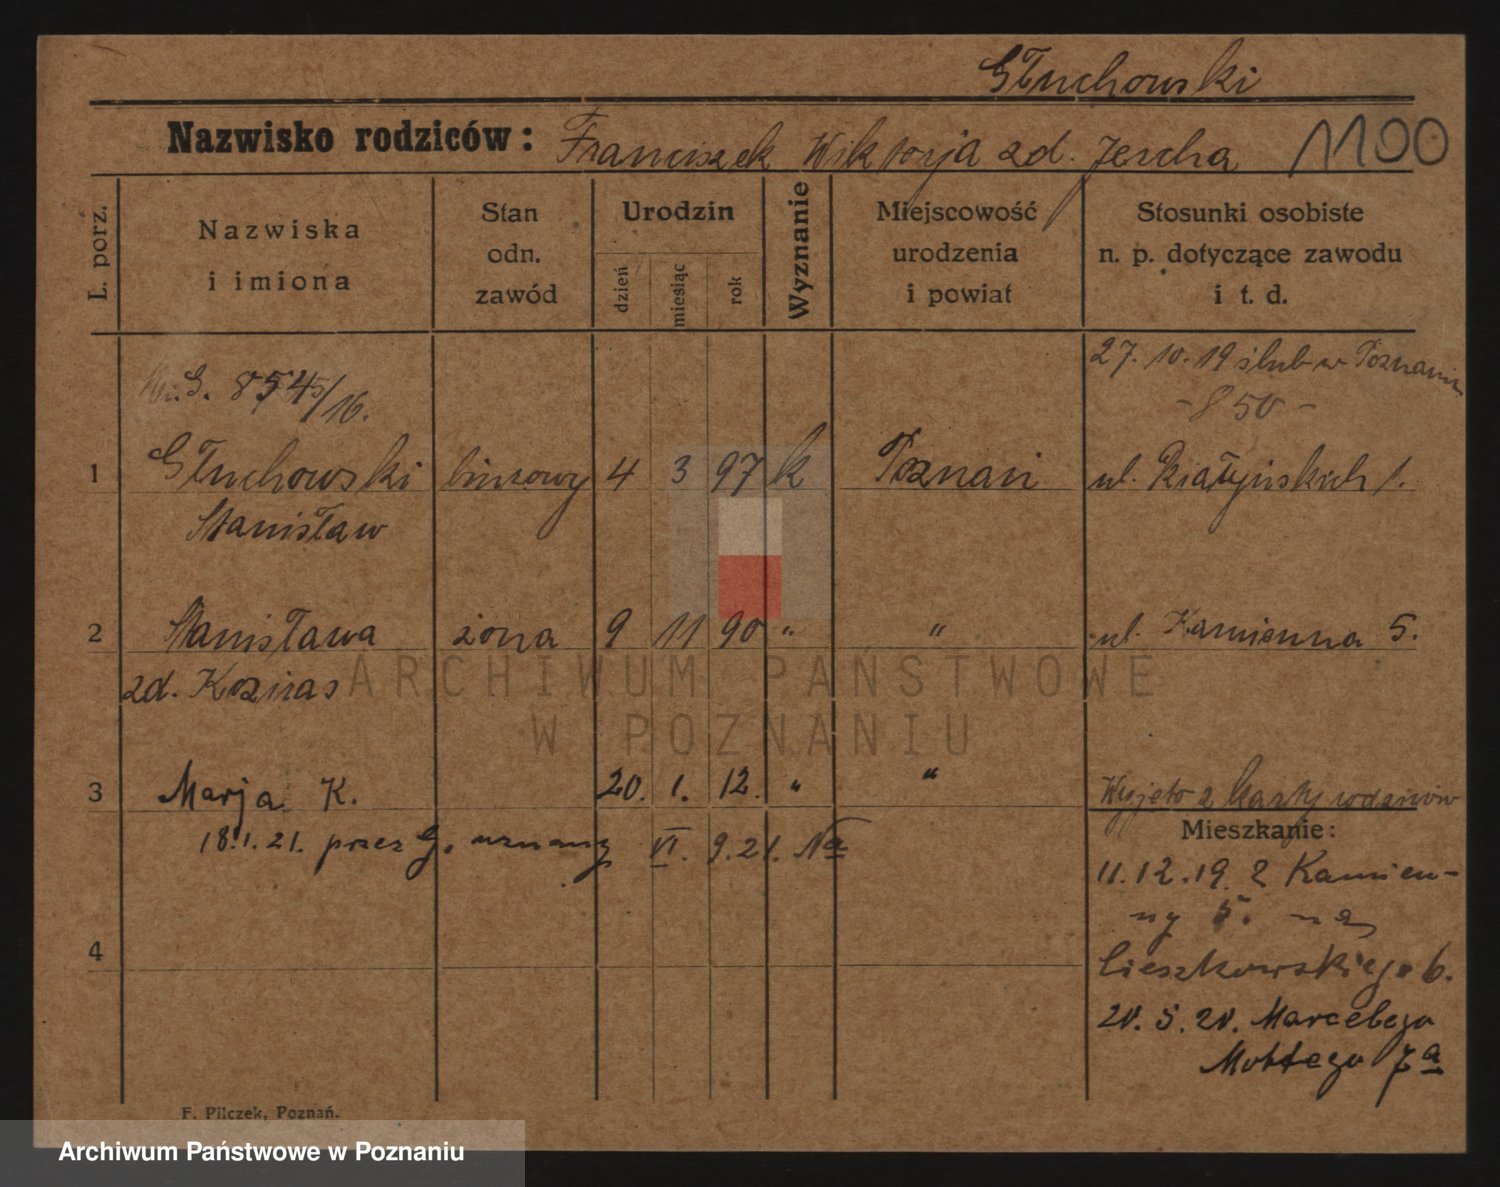 Głuchowski
Nazwisko rodziców: Franciszek Wiktorja zd. Jercha 1100
L. porz.
Nazwiska i imiona
Stan odn. zawód
Urodzin
dzień miesiąc rok
Wyznanie
Miejscowość urodzenia i powiat
Stosunki osobiste n. p. dotyczące zawodu i t. d.
27. 10. 19 ślub w Poznaniu
G. 8545/16.
- 850 -
1 Głuchowski biurowy 4 3 97 k Poznań ul. Działyńskich 1.
Stanisław
2 Stanisława żona 9 11 90 " " ul. Kamienna 5.
zd. Koznas
3 Marja K. 20. 1. 12. " " Wyjęto z karty rodziców
18.1.21. przez G. uznany VI. 9.21. Na
Mieszkanie:
11.12.19. z Kamien-
ny 5. na
Cieszkowskiego 6.
4
20. 5. 20. Marcelego
Mottego 7a
F. Pilczek, Poznań.
ARCHIWUM PAŃSTWOWE
W POZNANIU
Archiwum Państwowe w Poznaniu